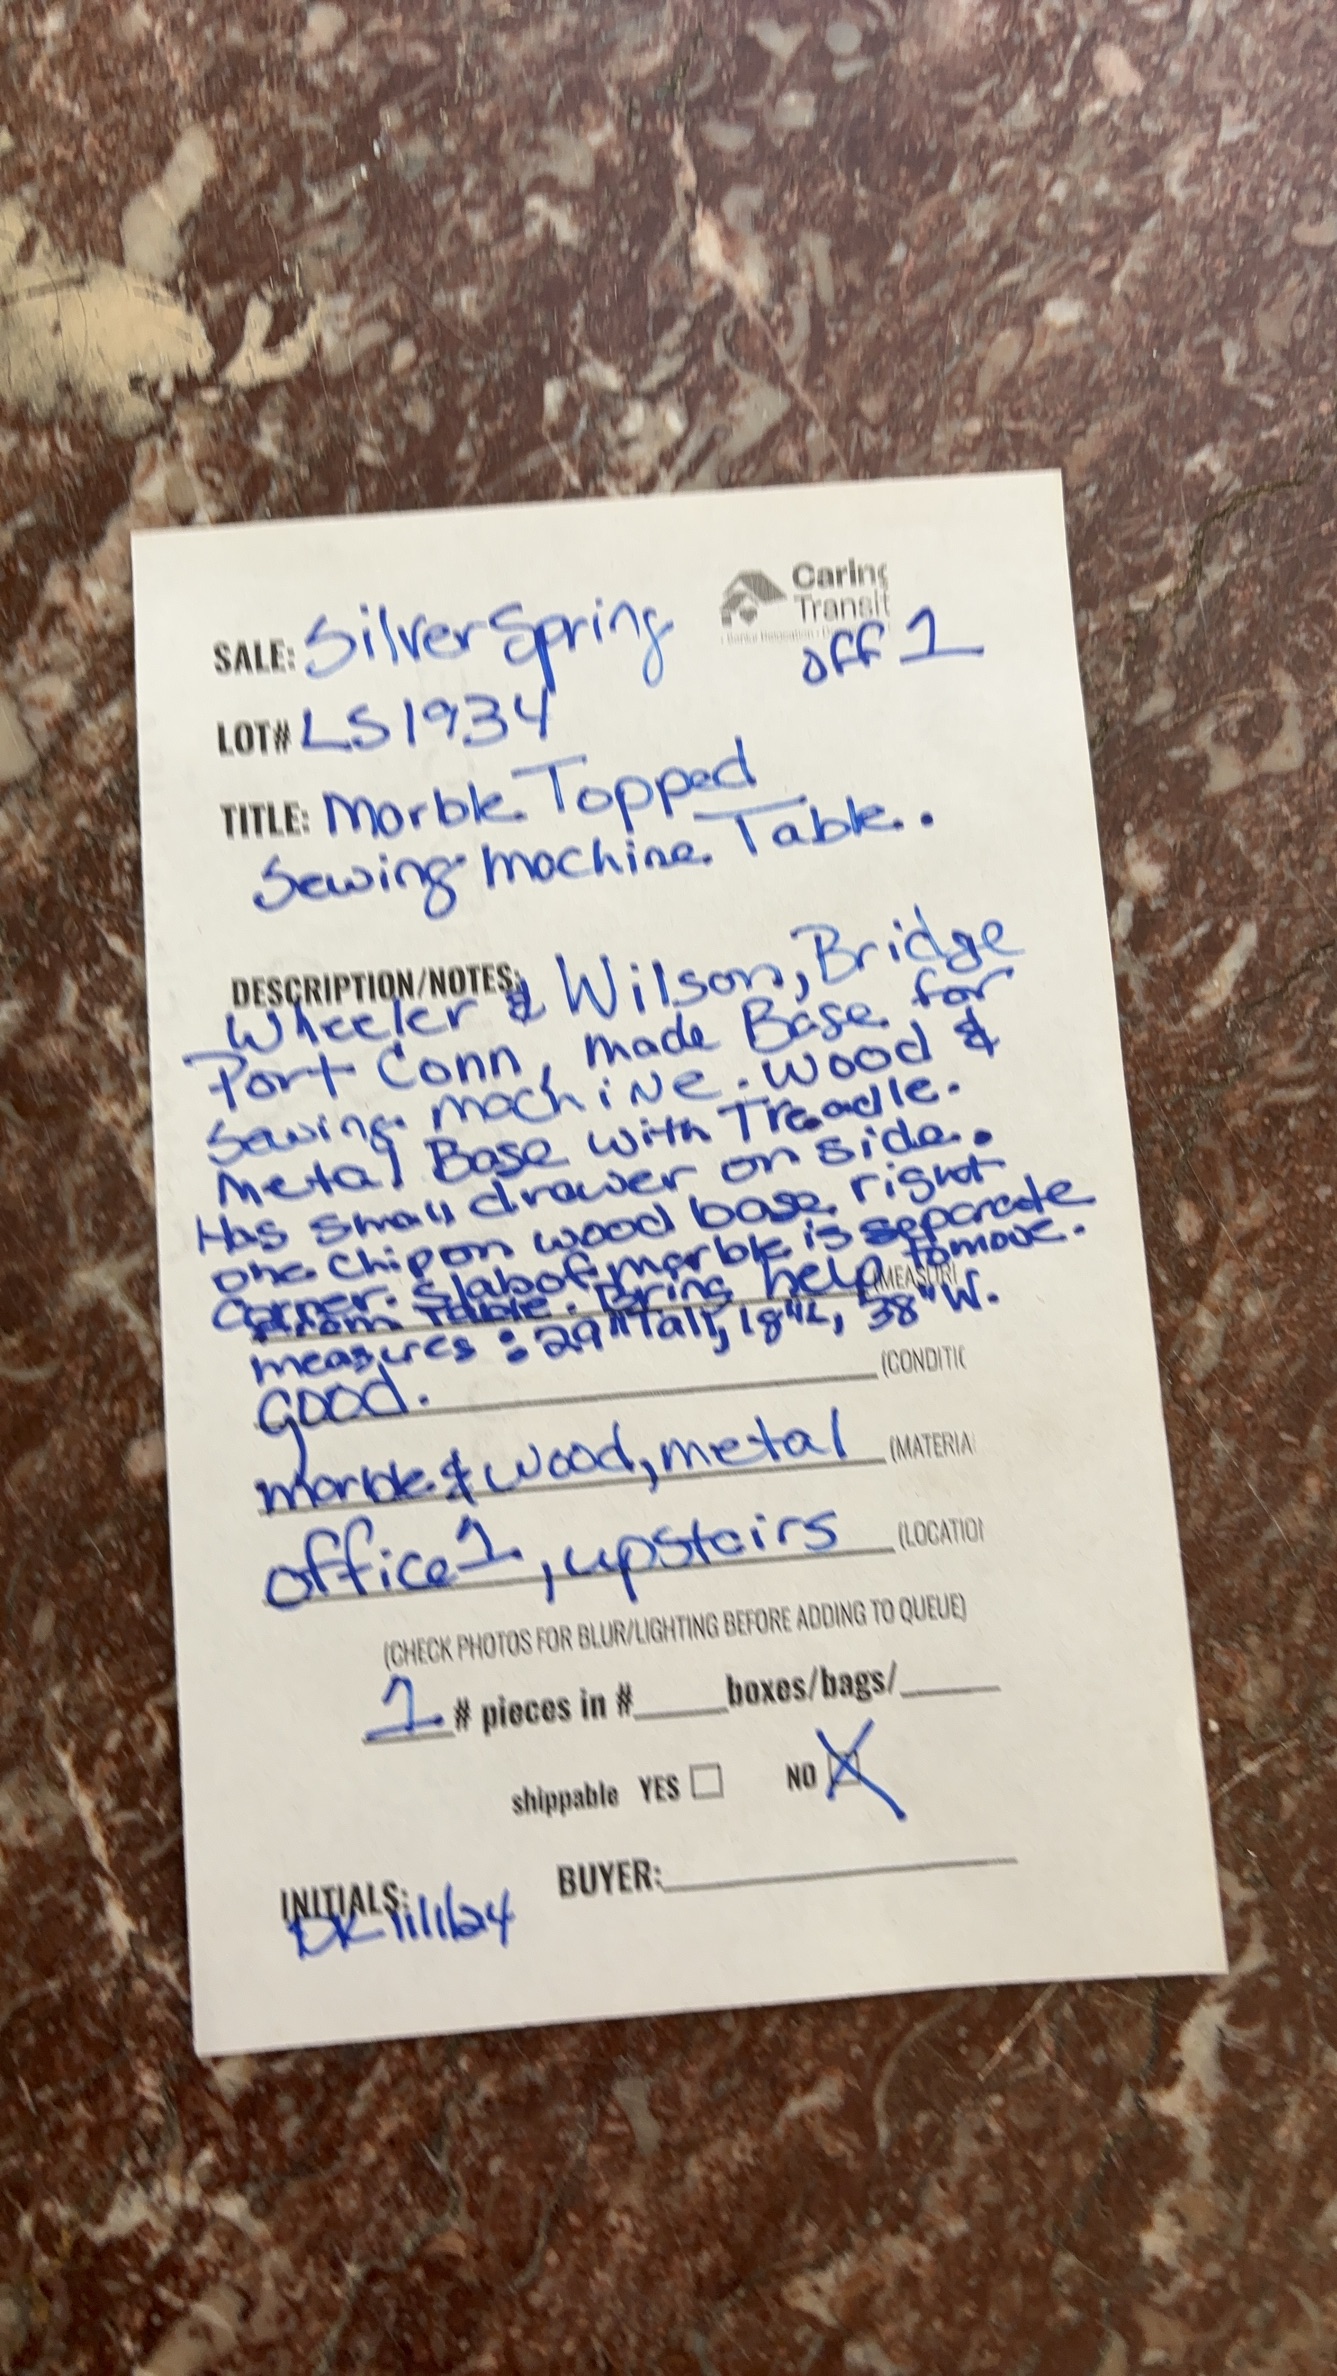 Caring
Transit
SALE: Silver Spring
off 1
LOT# LS1934
TITLE: Marble Topped
Sewing Machine Table.
DESCRIPTION/NOTES:
Wheeler & Wilson, Bridge
Port Conn, made Base for
Sewing machine. Wood &
Metal Base with Treadle.
Has small drawer on side.
one chip on wood base right
corner. Slab of marble is separate
from Table. Bring help to move.
(MEASURE
measures: 29" Tall, 18" L, 38" W.
Good. (CONDITIO
marble & wood, metal (MATERIA
office 1, upstairs (LOCATION
(CHECK PHOTOS FOR BLUR/LIGHTING BEFORE ADDING TO QUEUE)
1 # pieces in #____boxes/bags/____
shippable YES ☐ NO ☒
INITIALS: BUYER:
DK 11/1/24